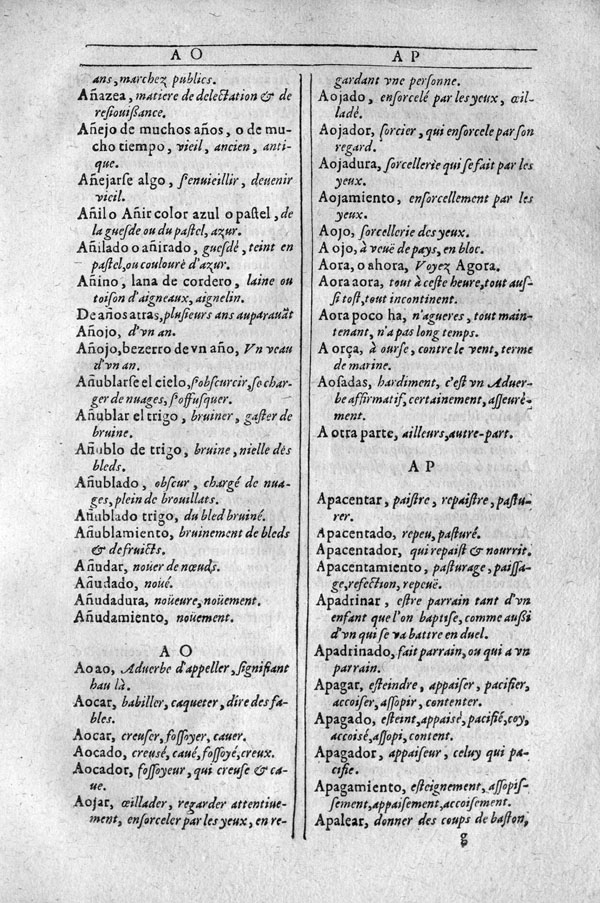 AO
AP
ans, marchez publics.
Añazea, matiere de delectation & de
resiouißance.
Añejo de muchos años, o de mu-
cho tiempo, vieil, ancien, anti-
que.
Añejarse algo, s'enuieillir, deuenir
vieil.
Añil o Añir color azul o pastel, de
la guesde ou du pastel, azur.
Añilado o añirado, guesdé, teint en
pastel, ou coulouré d'azur.
Añino, lana de cordero, laine ou
toison d'aigneaux, aignelin.
De años atras, plusieurs ans auparauãt
Añojo, d'vn an.
Añojo, bezerro de vn año, Vn veau
d'vn an.
Añublarse el cielo, s'obscurcir, se char-
ger de nuages, s'offusquer.
Añublar el trigo, bruiner, gaster de
bruine.
Añublo de trigo, bruine, nielle dès
bleds.
Añublado, obscur, chargé de nua-
ges, plein de brouillats.
Añublado trigo, du bled bruiné.
Añublamiento, bruinement de bleds
& de fruicts.
Añudar, noüer de nœuds.
Añudado, noüé.
Añudadura, noüeure, noüement.
Añudamiento, noüement.
AO
Aoao, Aduerbe d'appeller, signifiant
hau là.
Aocar, babiller, caqueter, dire des fa-
bles.
Aocar, creuser, fossoyer, cauer.
Aocado, creusé, caué, fossoyé, creux.
Aocador, fossoyeur, qui creuse & ca-
ue.
Aojar, œillader, regarder attentiue-
ment, ensorceler par les yeux, en re-
gardant vne personne.
Aojado, ensorcelé par les yeux, œil-
ladé.
Aojador, sorcier, qui ensorcele par son
regard.
Aojadura, sorcellerie qui se fait par les
yeux.
Aojamiento, ensorcellement par les
yeux.
Aojo, sorcellerie des yeux.
A ojo, à veuë de pays, en bloc.
Aora, o ahora, Voyez Agora.
Aora aora, tout à ceste heure, tout aus-
si tost, tout incontinent.
Aora poco ha, n'agueres, tout main-
tenant, n'a pas long temps.
A orça, à ourse, contre le vent, terme
de marine.
Aosadas, hardiment, c'est vn Aduer-
be affirmatif, certainement, asseuré-
ment.
A otra parte, ailleurs, autre-part.
AP
Apacentar, paistre, repaistre, pastu-
rer.
Apacentado, repeu, pasturé.
Apacentador, qui repaist & nourrit.
Apacentamiento, pasturage, paissa-
ge, refection, repeuë.
Apadrinar, estre parrain tant d'vn
enfant que l'on baptise, comme außi
d'vn qui se va battre en duel.
Apadrinado, fait parrain, ou qui a vn
parrain.
Apagar, esteindre, appaiser, pacifier,
accoiser, assopir, contenter.
Apagado, esteint, appaisé, pacifié, coy,
accoisé, assopi, content.
Apagador, appaiseur, celuy qui pa-
cifie.
Apagamiento, esteignement, assopis-
sement, appaisement, accoisement.
Apalear, donner des coups de baston,
g